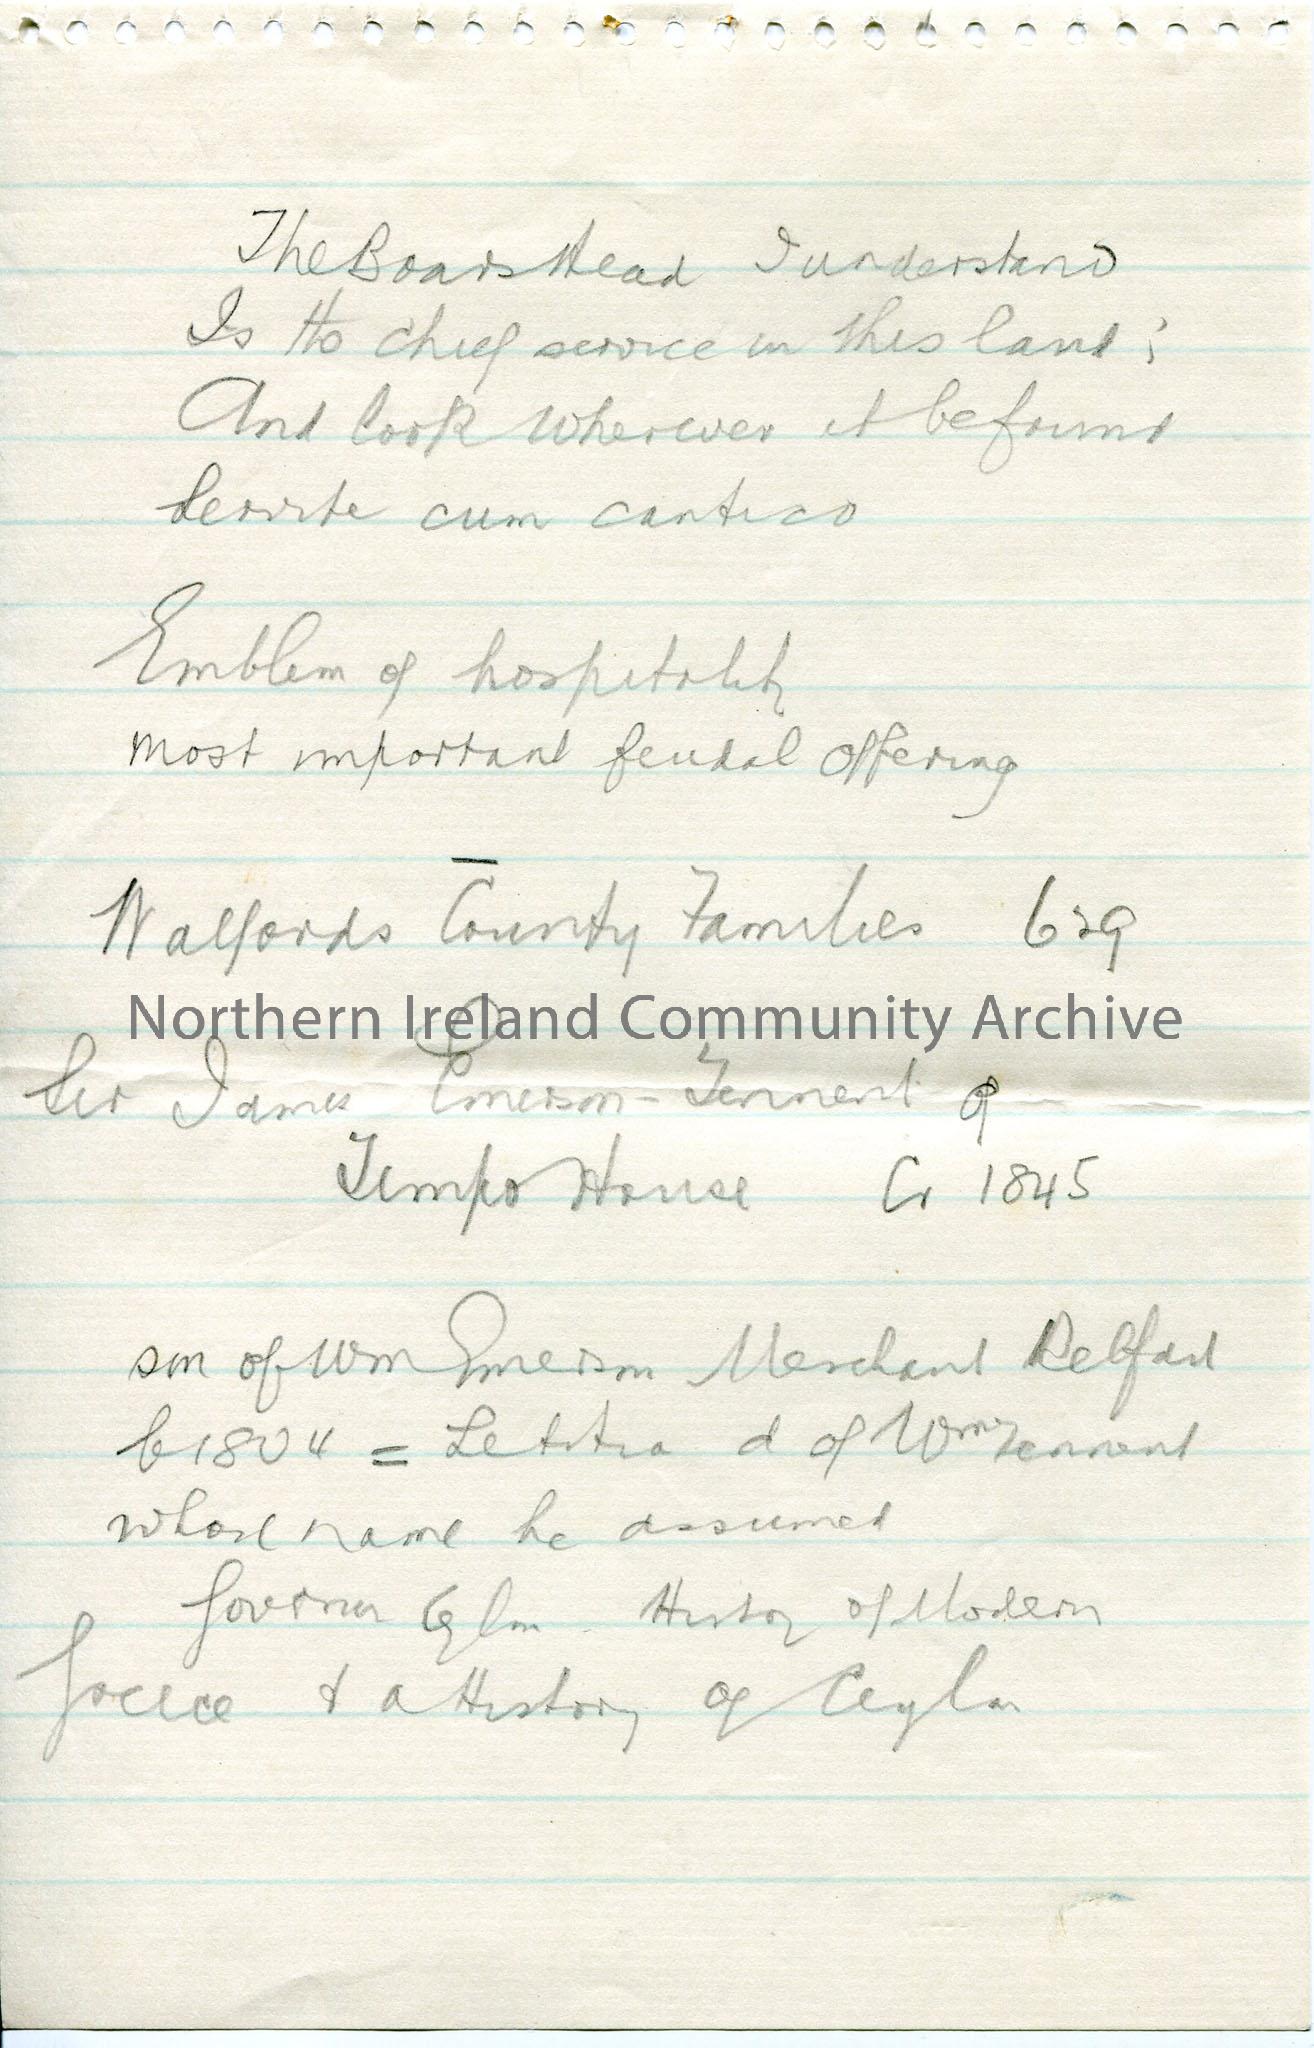 The Boars Head I understand
Is the chief service in this land;
And look wherever it be found
Servite cum cantico
Emblem of hospitality
most important feudal offering
Walfords County Families 629
Northern Ireland Community Archive
Sir James Emerson-Tennent of
Tempo House Cr 1845
son of Wm Emerson Merchant Belfast
b 1804 = Letitia d of Wm Tennent
whose name he assumed
Governor Ceylon History of Modern
Greece & a History of Ceylon